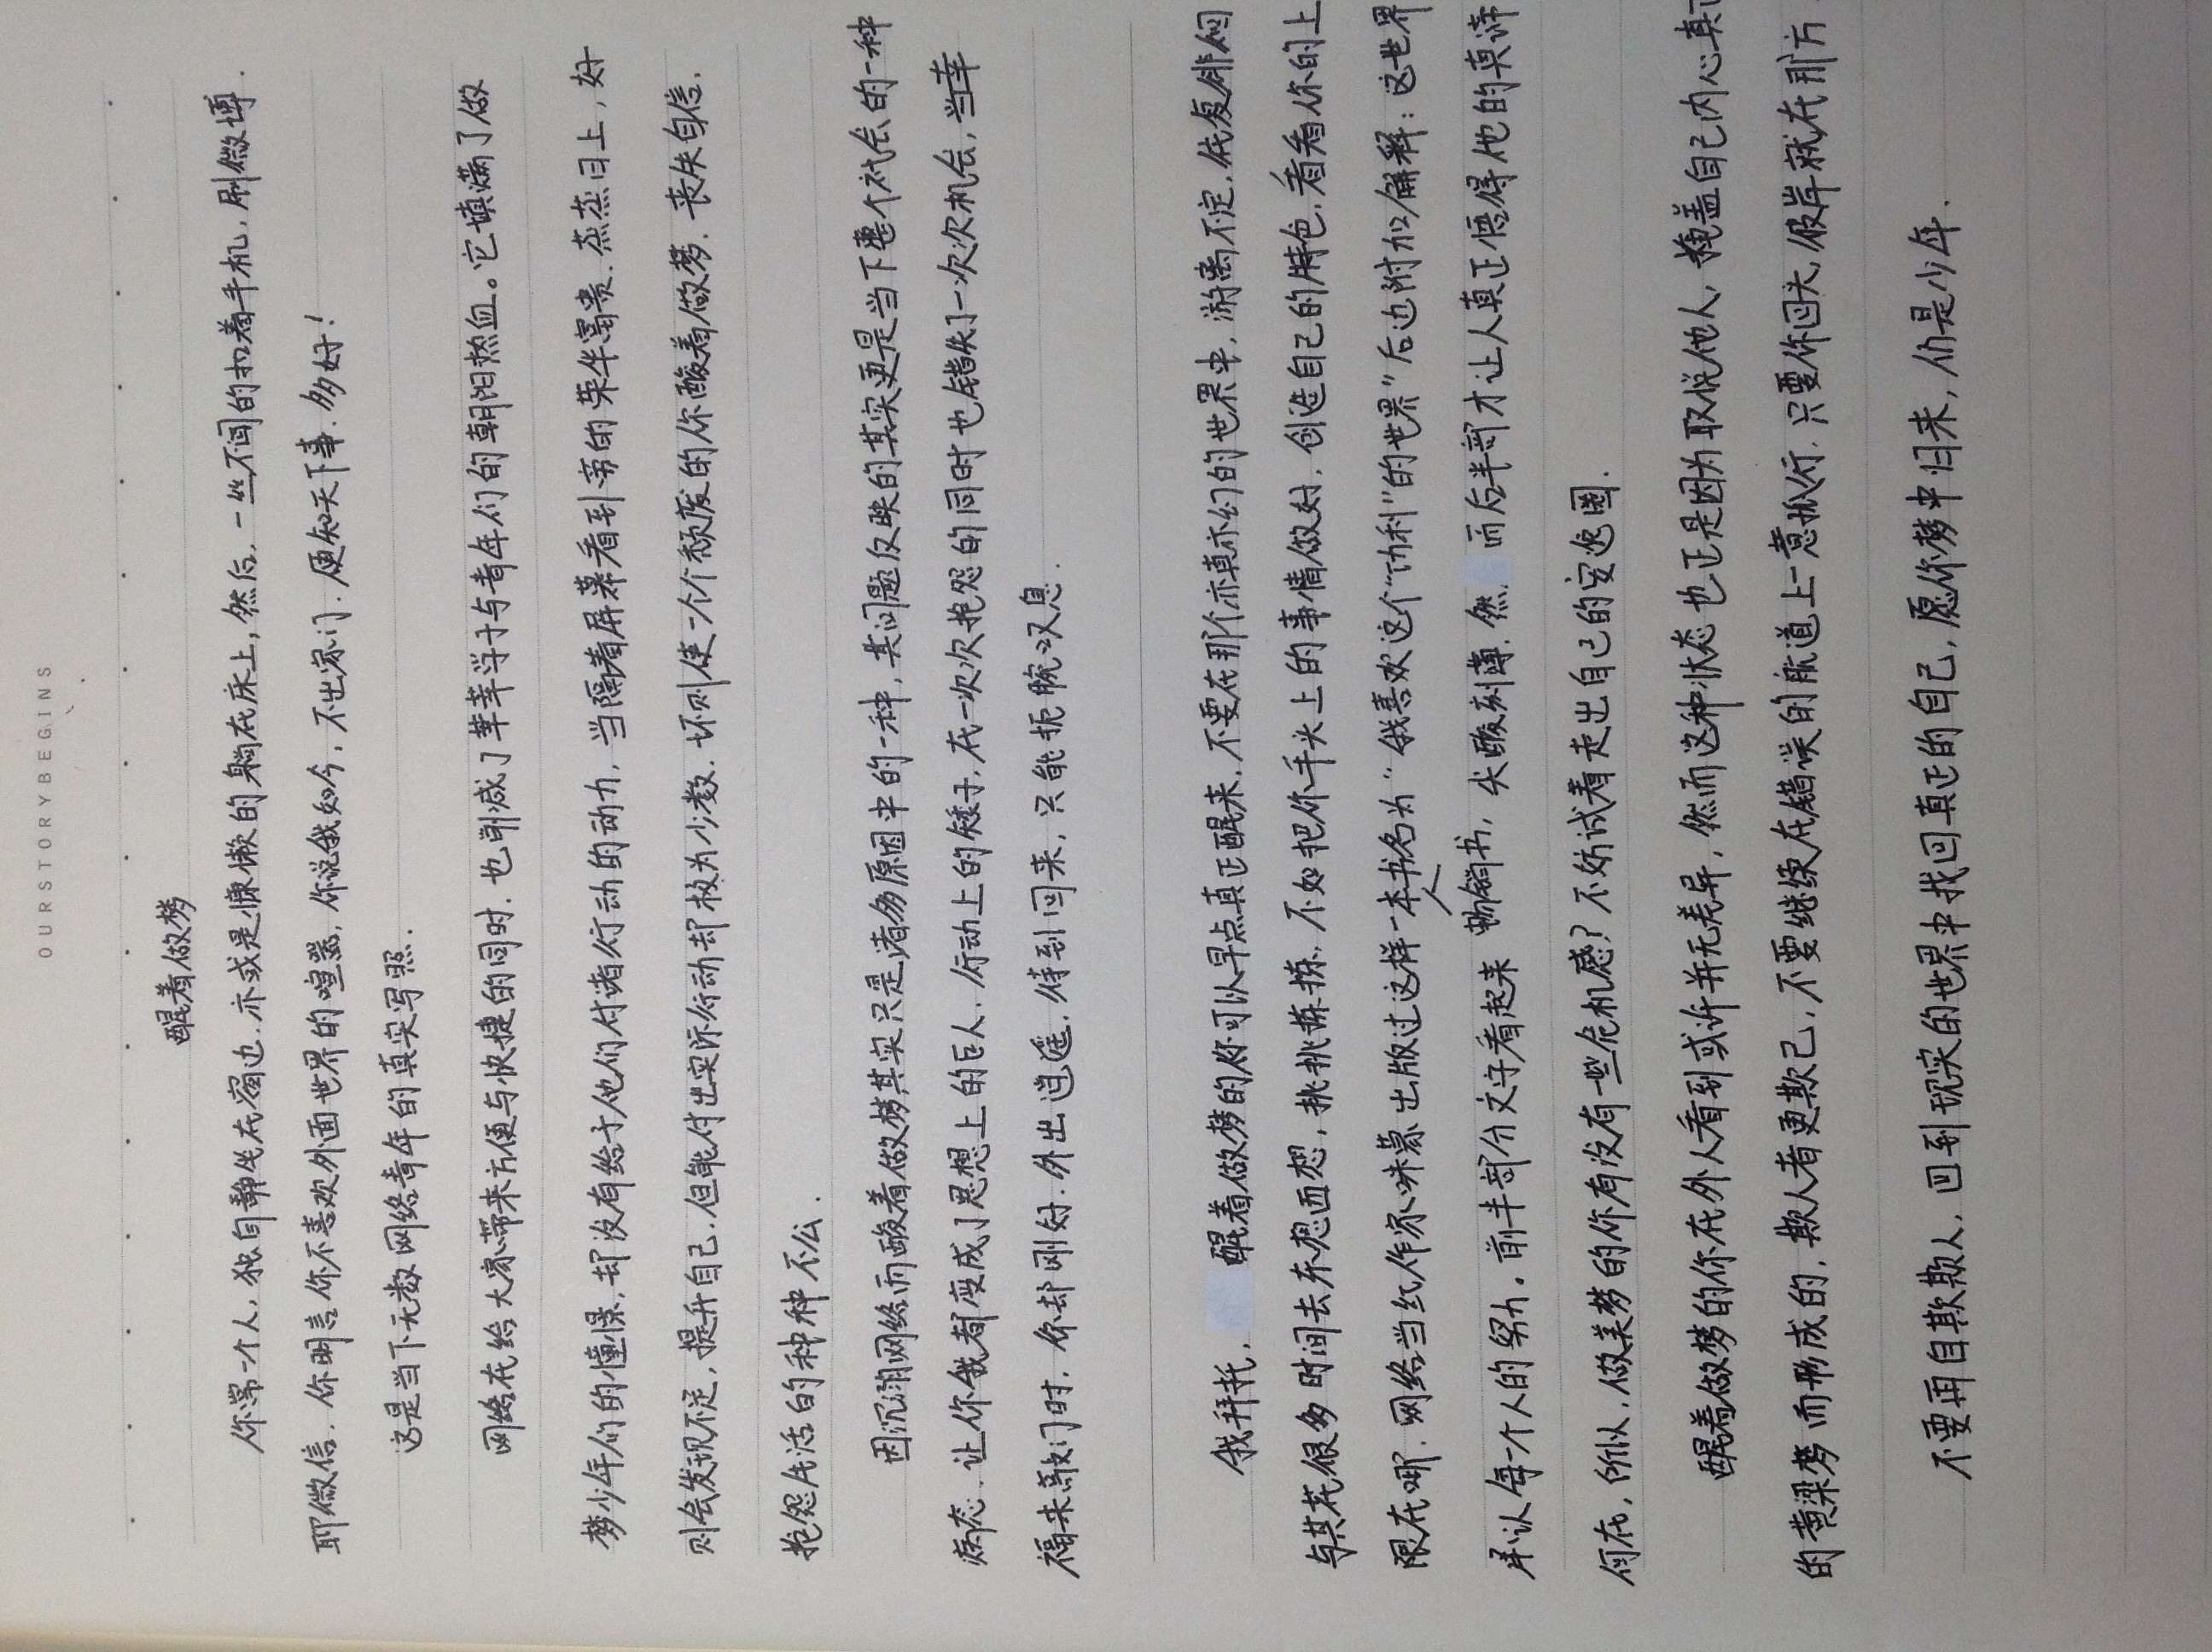 OURSTORYBEGINS
醒着做梦
你常一个人，独自静坐在窗边．亦或是慵懒的躺在床上，然后，一丝不闻的扣着手机，刷微博．
聊微信．你明言你不喜欢外面世界的喧嚣，你说我如今，不出家门．便知天下事．多好！
这是当下无数网络青年的真实写照．
网络在给大家带来方便与快捷的同时．也削减了莘莘学子与青年们的朝阳热血。它填满了做
梦少年们的憧憬，却没有给于他们付诸行动的动力，当隔着屏幕看到旁的荣华富贵．蒸蒸日上，好
则会发现不足，提升自己．但能付出实际行动却极为少数．坏则使一个个颓废的你醒着做梦．丧失自信．
抱怨生活的种种不公．
因沉溺网络而醒着做梦其实只是诸多原因中的一种，其问题反映的其实更是当下整个社会的一种
病态．让你我都变成了思想上的巨人．行动上的矮子，在一次次抱怨的同时也错失了一次次机会，当幸
福来敲门时．你却刚好．外出逍遥．待到回来，只能扼腕叹息．
我拜托．醒着做梦的你可以早点真正醒来．不要在那个亦真亦幻的世界中，游离不定．依复徘徊
与其花很多时间去东想西想，挑挑拣拣．不如把你手头上的事情做好．创造自己的特色，看看你的上
限在哪．网络当红作家咪蒙出版过这样一本书名为“我喜欢这个“功利”的世界”后边附加解释：这世界
承认每一个人的努力．前半部分文字看起来畅销书，尖酸刻薄．然．而后半部才让人真正悟得他的真谛
何在，所以，做美梦的你有没有一些危机感？不妨试着走出自己的安逸圈．
醒着做梦的你在外人看到或许并无差异，然而这种状态也正是因为取悦他人，掩盖自己内心真
的黄粱梦而形成的．欺人者更欺己，不要继续在错误的航道上一意孤行．只要你回头，彼岸就在那方
不要再自欺欺人．回到现实的世界中找回真正的自己，愿你梦中归来，仍是少年．